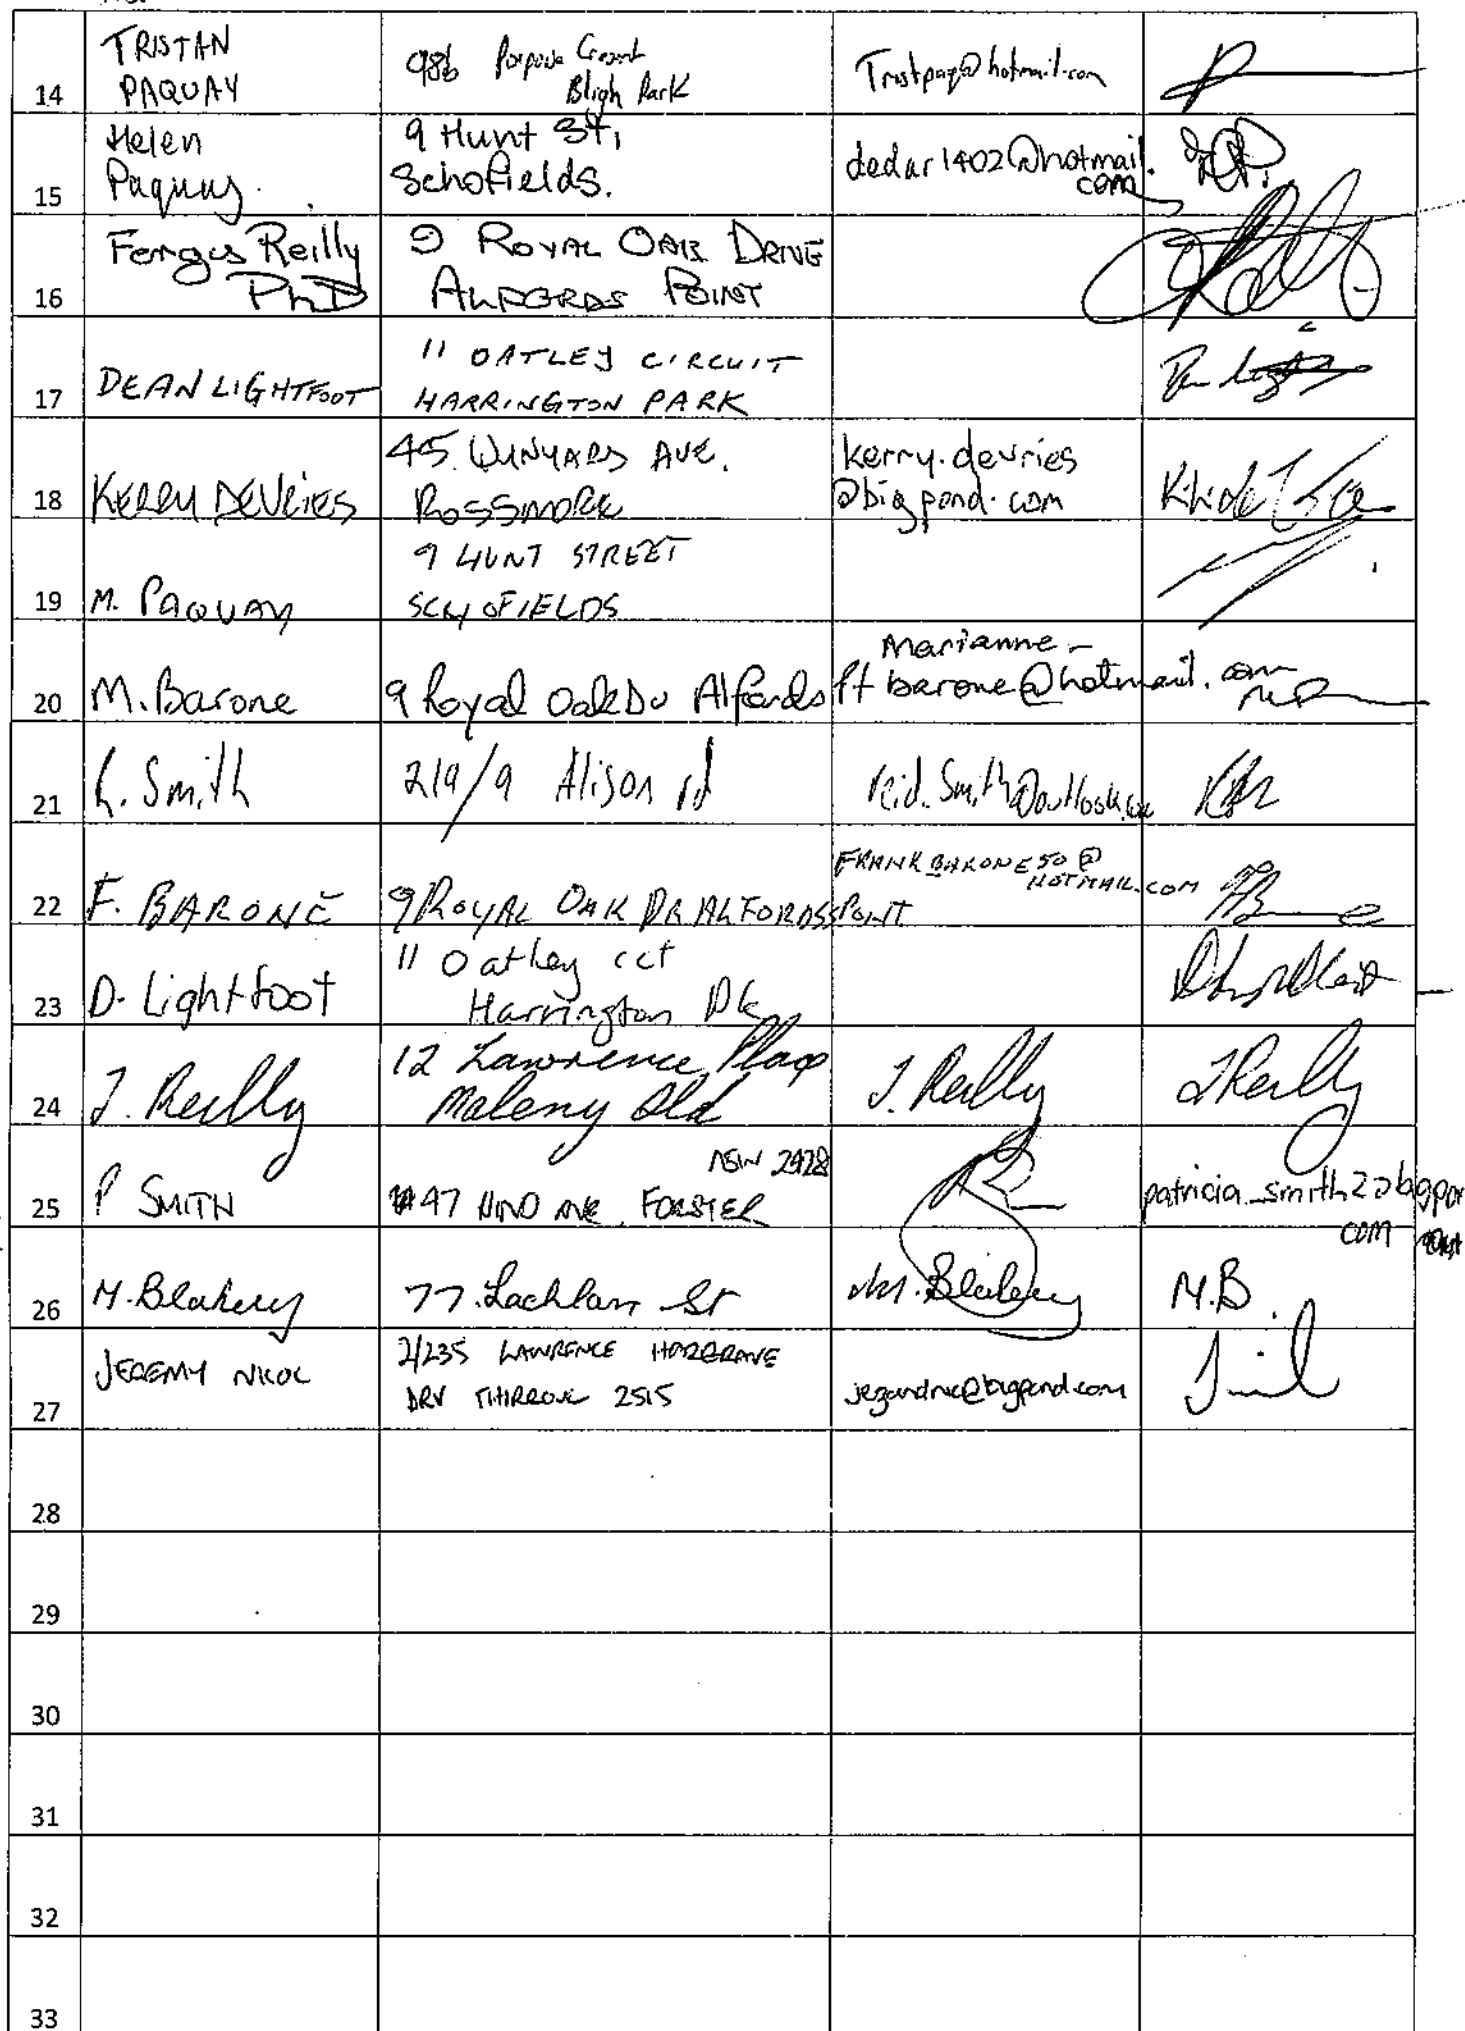 TRISTAN
PAQUAY
98b Crescent
Bligh Park
Tristpaq@hotmail.com
14
Helen
Paquay.
9 Hunt St,
Schofields.
dedar1402@hotmail.
com
15
Fergus Reilly
PhD
9 ROYAL OAK DRIVE
ALFORDS POINT
16
DEAN LIGHTFOOT
11 OATLEY CIRCUIT
HARRINGTON PARK
17
KERRY DEVRIES
45. WYNYARD AVE.
ROSSMORE
kerry.devries
@bigpond.com
18
M. PAQUAY
9 HUNT STREET
SCHOFIELDS
19
M. Barone
9 Royal Oak Dv Alfords Pt
Marianne-
barone@hotmail.com
20
Smith
219/9 Alison rd
21
F. BARONE
9 ROYAL OAK DR ALFORDSS POINT
FRANKBARONE50@
HOTMAIL.COM
22
D. Lightfoot
11 Oatley cct
Harrington Pk
23
J. Reilly
12 Lawrence Place
Maleny Qld
J. Reilly
J Reilly
24
P SMITH
NSW 2428
47 HIND AVE. FORSTER
patricia_smith2@bigpon
com
25
M. Blakery
77. Lachlan St
M. Blakery
M.B.
26
JEREMY NICOL
2/235 LAWRENCE HARGRAVE
DRV THIRROUL 2515
jezandnic@bigpond.com
27
28
29
30
31
32
33